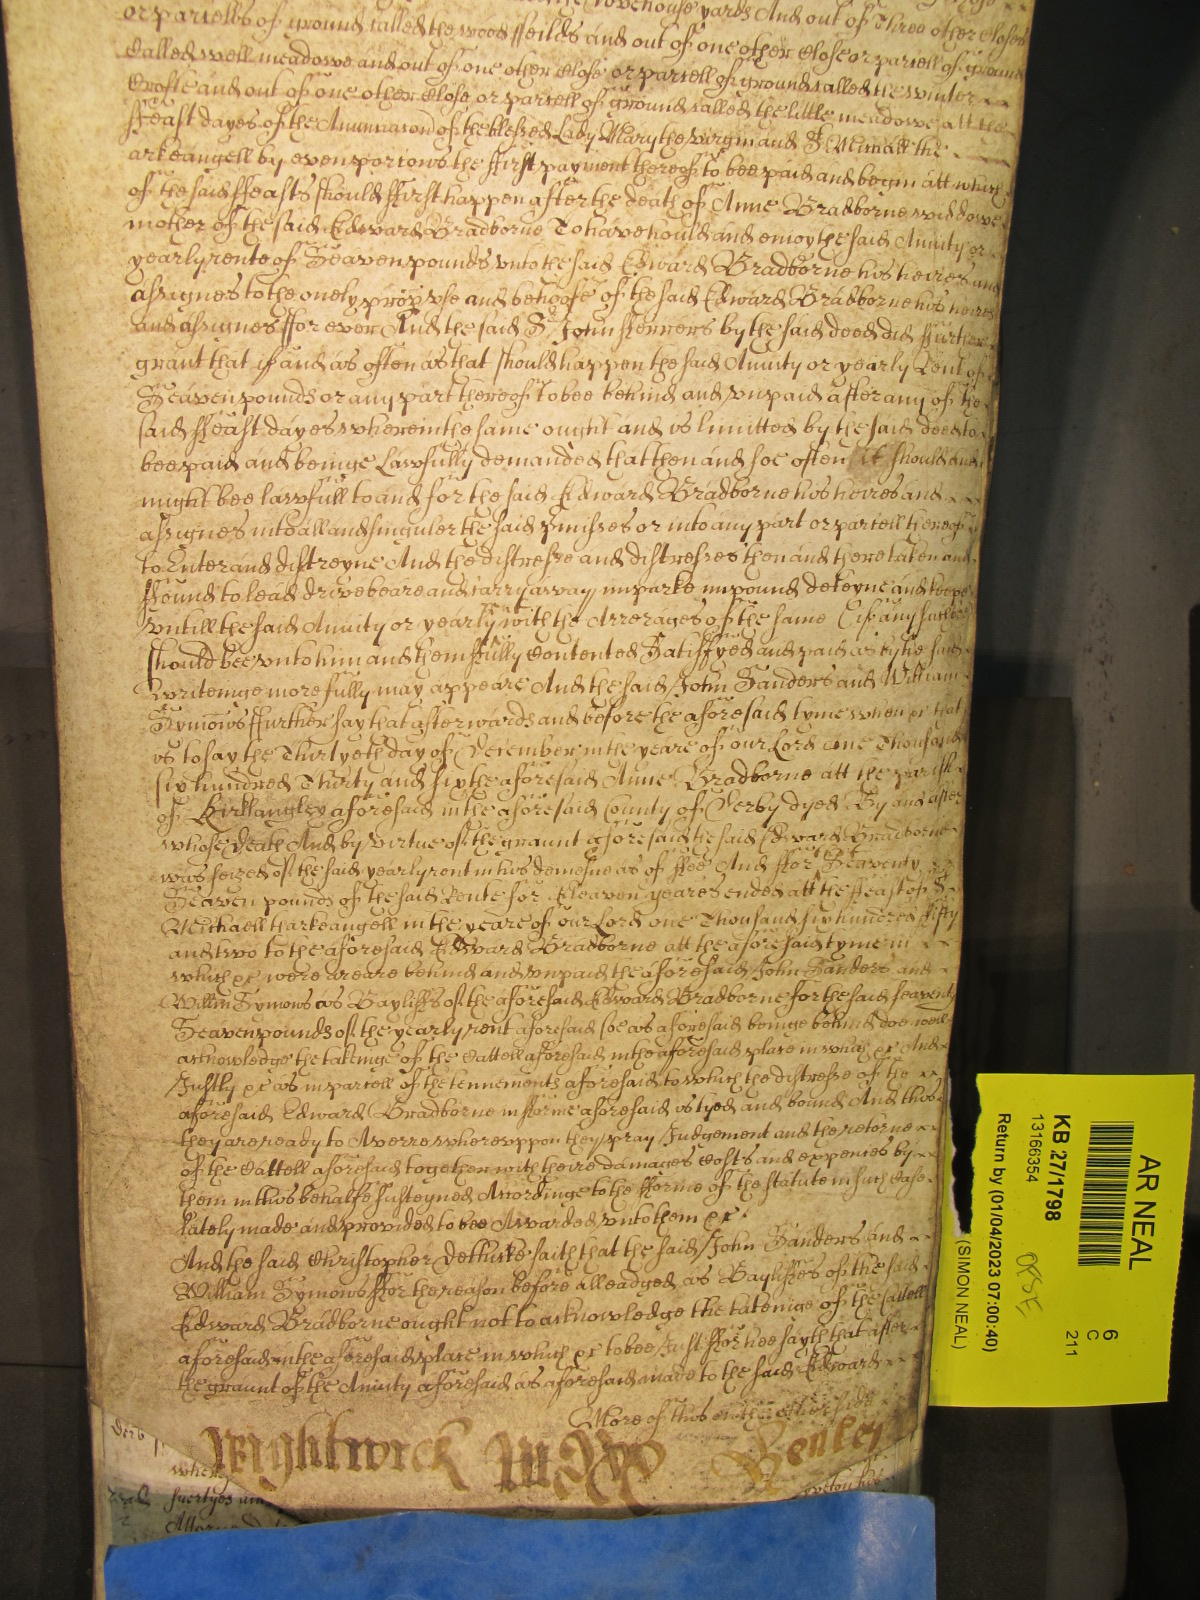 yards And out of Three other Closes
or parcells of ground called the wood ffeilds and out of one other Close or parcell of ground
Called well meadowe and out of one other Close or parcell of ground called the winter
Crofte and out of one other Close or parcell of ground called the little meadowe att the
ffeast dayes of the Annunciacon of the blessed Lady Mary the virgin and St Michaell the
arkeangell by even porcions the ffirst payment thereof to bee paid and begin att which
of the said ffeasts should ffirst happen after the death of Anne Bradborne widdowe
mother of the said Edward Bradborne To have hould and enioy the said Anuity or
yearly rente of Seaven pounds vnto the said Edward Bradborne his heires and
assignes to the onely prop vse and behoofe of the said Edward Bradborne his heires
and assignes ffor ever And the said Sr John fferrers by the said deed did ffurther
grant that if and as often as that should happen the said Anuity or yearly Rent of
Seaven pounds or any part thereof to bee behind and vnpaid after any of the
said ffeast dayes wherein the same ought and is limitted by the said deed to
bee paid and beinge Lawfully demanded that then and soe often it should and
might bee lawfull to and for the said Edward Bradborne his heires and
assignes into all and singuler the said pmisses or into any part or parcell thereof
to Enter and distreyne And the distresse and distresses then and there taken and
ffound to lead drive beare and carry away imparke impound deteyne and keepe
vntill the said Anuity or yearly Rent with the Arrerages of the same (if any such
should bee vnto him and them ffully Contented Satisffyed and paid as by the said
writeinge more fully may appeare And the said John Sanders and William
Symons ffurther say that afterwards and before the aforesaid tyme when &c that
is to say the Thirtyeth day of December in the yeare of our Lord one Thousand
six hundred Thirty and six the aforesaid Anne Bradborne att the parish
of Kirklangley aforesaid in the aforesaid County of Derby dyed By and after
whose death And by virtue of the graunt aforesaid the said Edward Bradborne
was seized of the said yearly rent in his demesne as of ffee And ffor Seaventy
Seaven pounds of the said Rente for Eleaven yeares ended att the ffeast of St
Michaell tharkeangell in the yeare of our Lord one Thousand six hundred ffifty
and two to the aforesaid Edward Bradborne att the aforesaid tyme in
which &c were areare behind and vnpaid the aforesaid John Sanders and
Willm Symons as Bayliffs of the aforesaid Edward Bradborne for the said seaventy
Seaven pounds of the yearly rent aforesaid soe as aforesaid beinge behind doe well
acknowledge the takeinge of the Cattell aforesaid in the aforesaid place in which &c And
Justly &c as in parcell of the tennements aforesaid to which the distresse of the
aforesaid Edward Bradborne in fforme aforesaid is tyed and bound And this
they are ready to Averre whereuppon they pray Judgement and the retorne
of the Cattell aforesaid together with theire damages Costs and expences by
them in this behalfe susteyned Accordinge to the fforme of the statute in such Case
lately made and provided to bee Awarded vnto them &c
And the said Christopher Dethicke saith that the said John Sanders and
William Symons ffor the reason before alleadged as Bayliffes of the said
Edward Bradborne ought not to acknowledge the takeinge of the Cattell
aforesaid in the aforesaid place in which &c to bee Just ffor hee sayth that after
the graunt of the Anuity aforesaid as aforesaid made to the said Edward
More of this on the other side
Wightwick
Derb
AR NEAL
6
C
211
KB 27/1798
13166354
Return by (01/04/2023 07:00:40)
(SIMON NEAL)